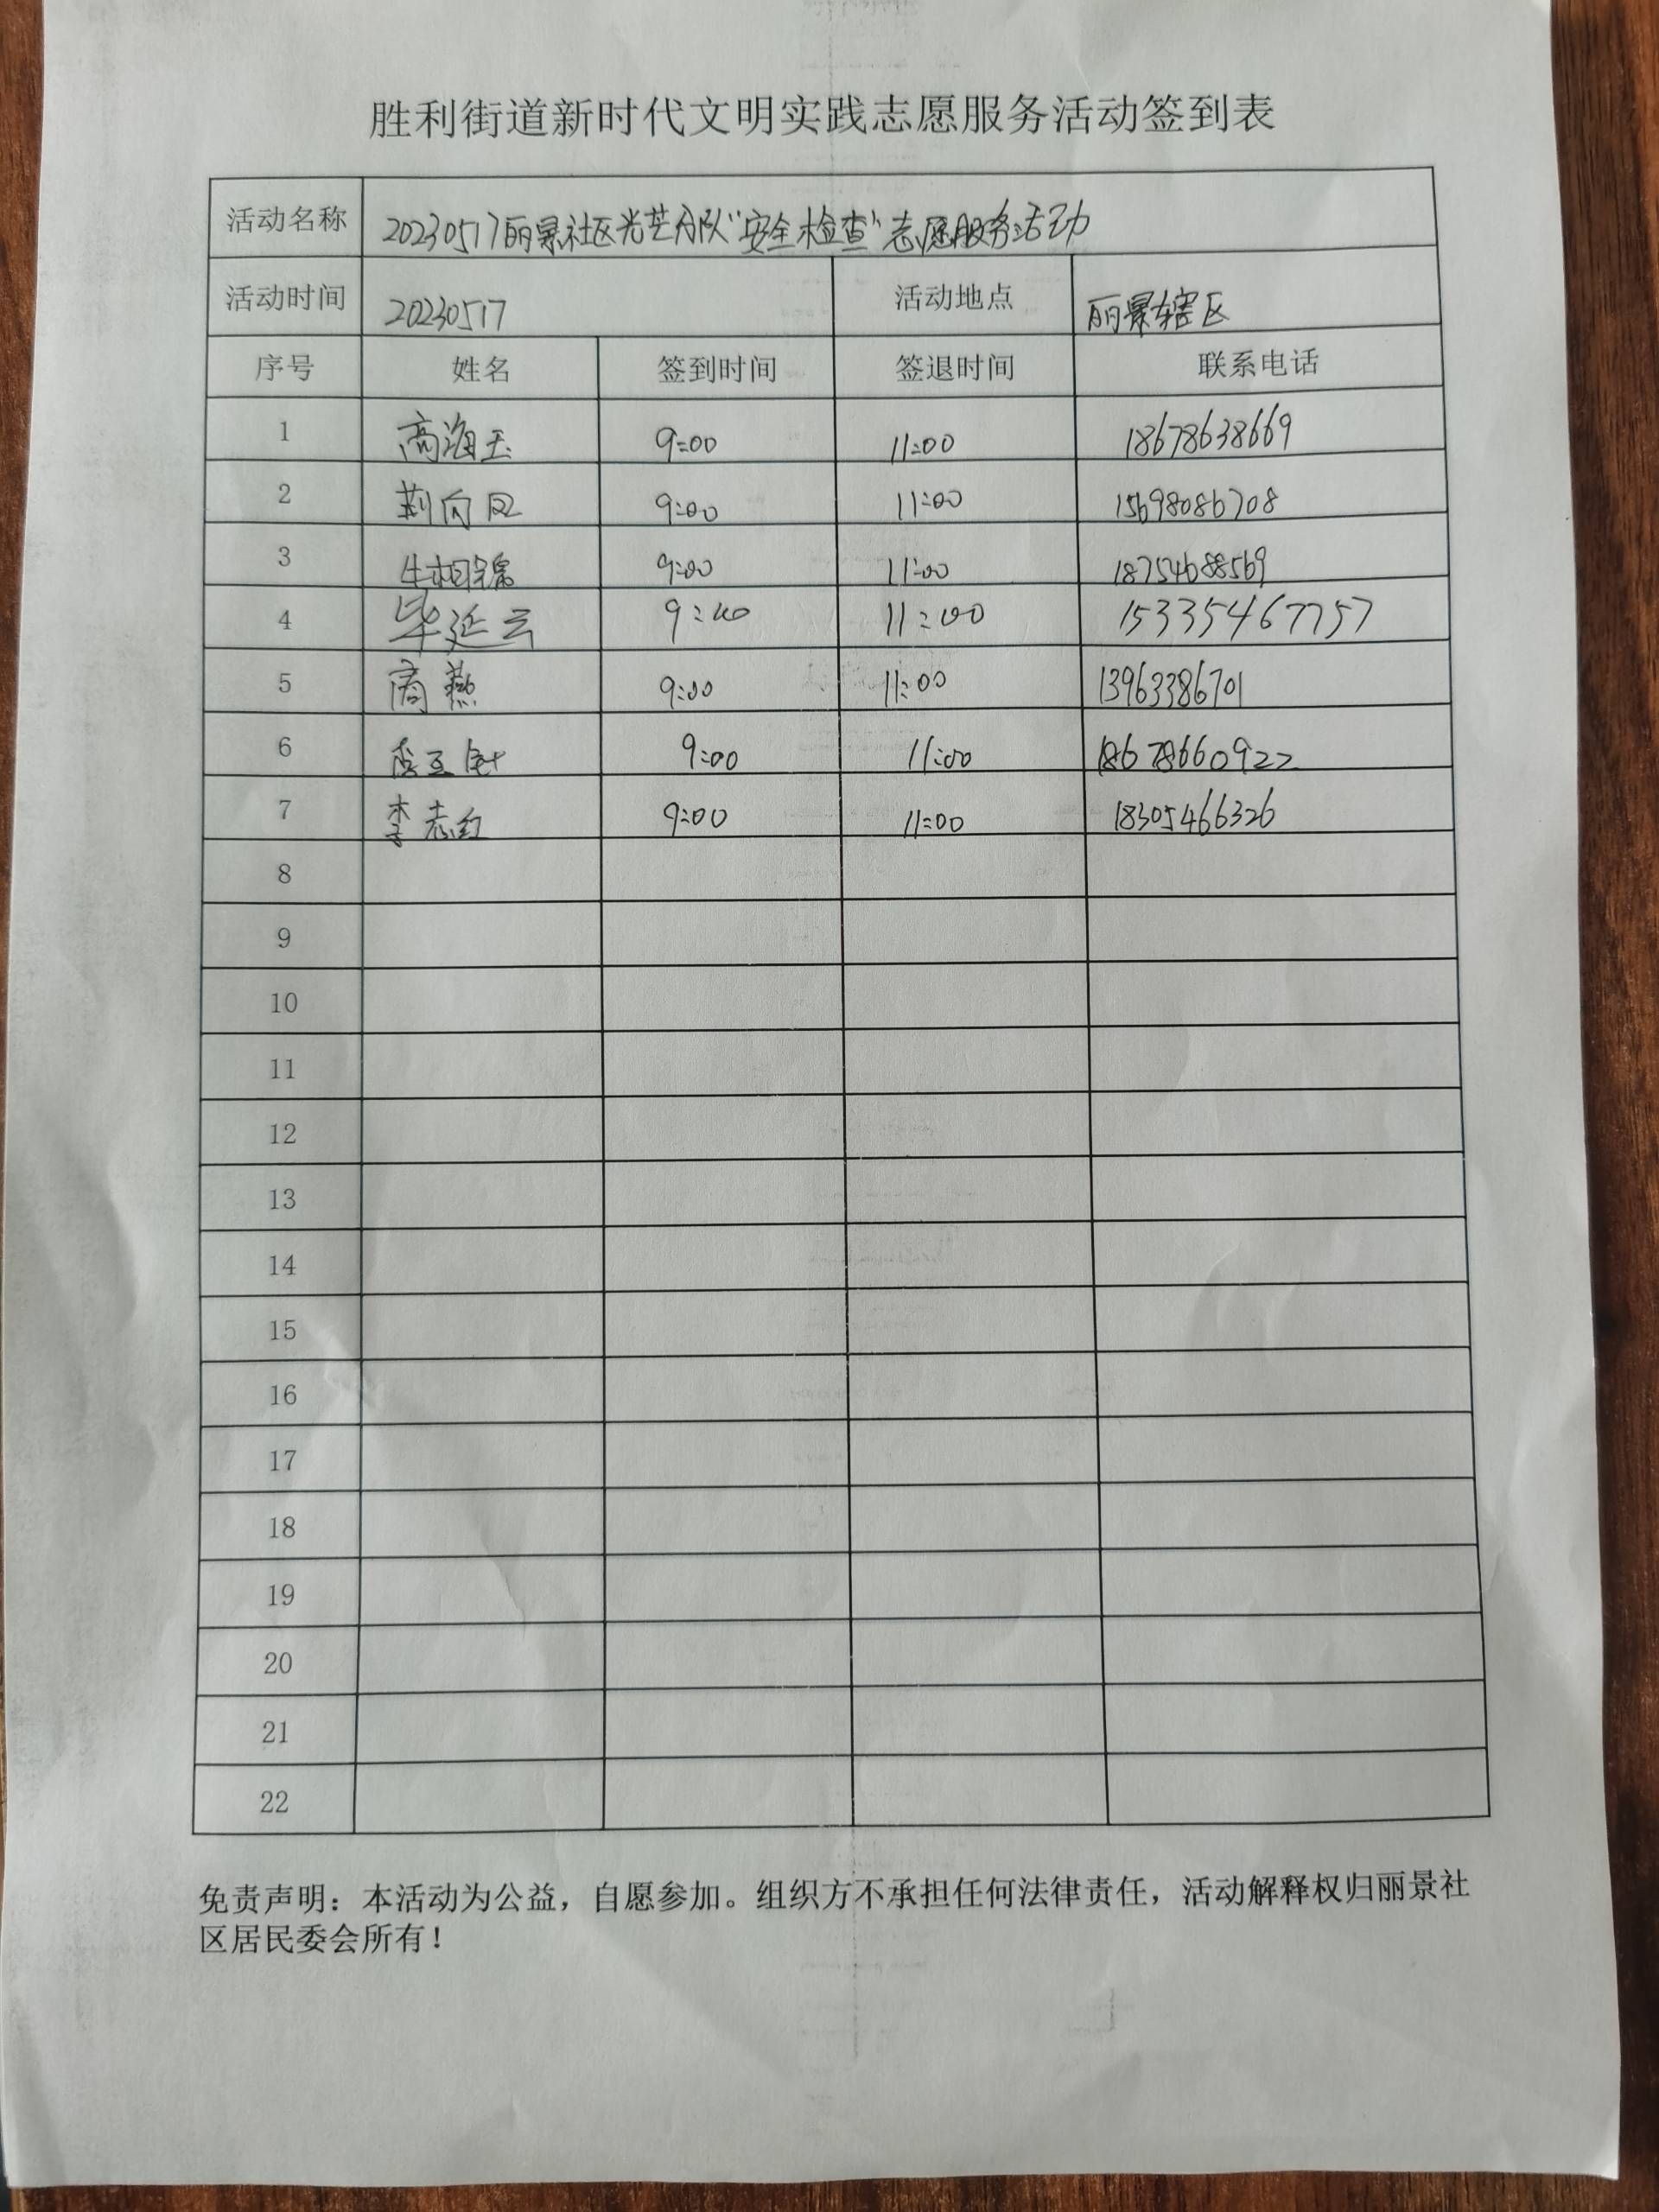 胜利街道新时代文明实践志愿服务活动签到表
活动名称 20230517丽景社区光芒分队“安全检查”志愿服务活动
活动时间 20230517 活动地点 丽景辖区
序号 姓名 签到时间 签退时间 联系电话
1 高海玉 9:00 11:00 18678638669
2 荆向凤 9:00 11:00 15698086708
3 9:00 11:00 18754688569
4 毕延云 9:00 11:00 15335467757
5 商燕 9:00 11:00 13963386701
6 9:00 11:00 18678660922
7 李志红 9:00 11:00 18305466326
8
9
10
11
12
13
14
15
16
17
18
19
20
21
22
免责声明：本活动为公益，自愿参加。组织方不承担任何法律责任，活动解释权归丽景社
区居民委会所有！